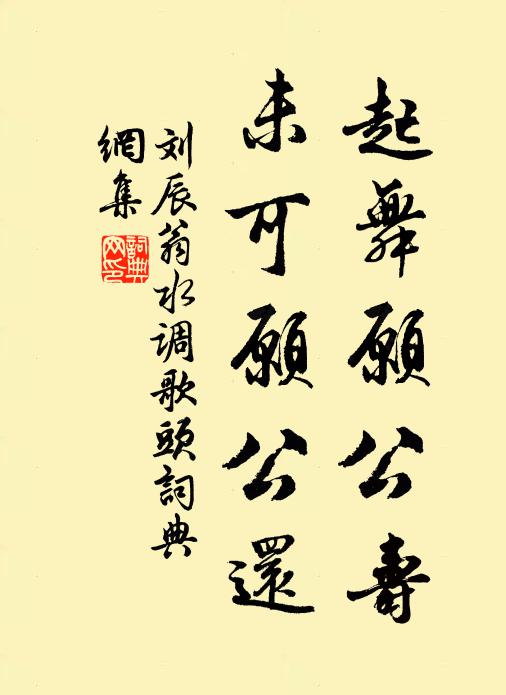 起舞願公壽
未可願公還
刘辰翁水调歌頭詞典
網集
詞典
网印